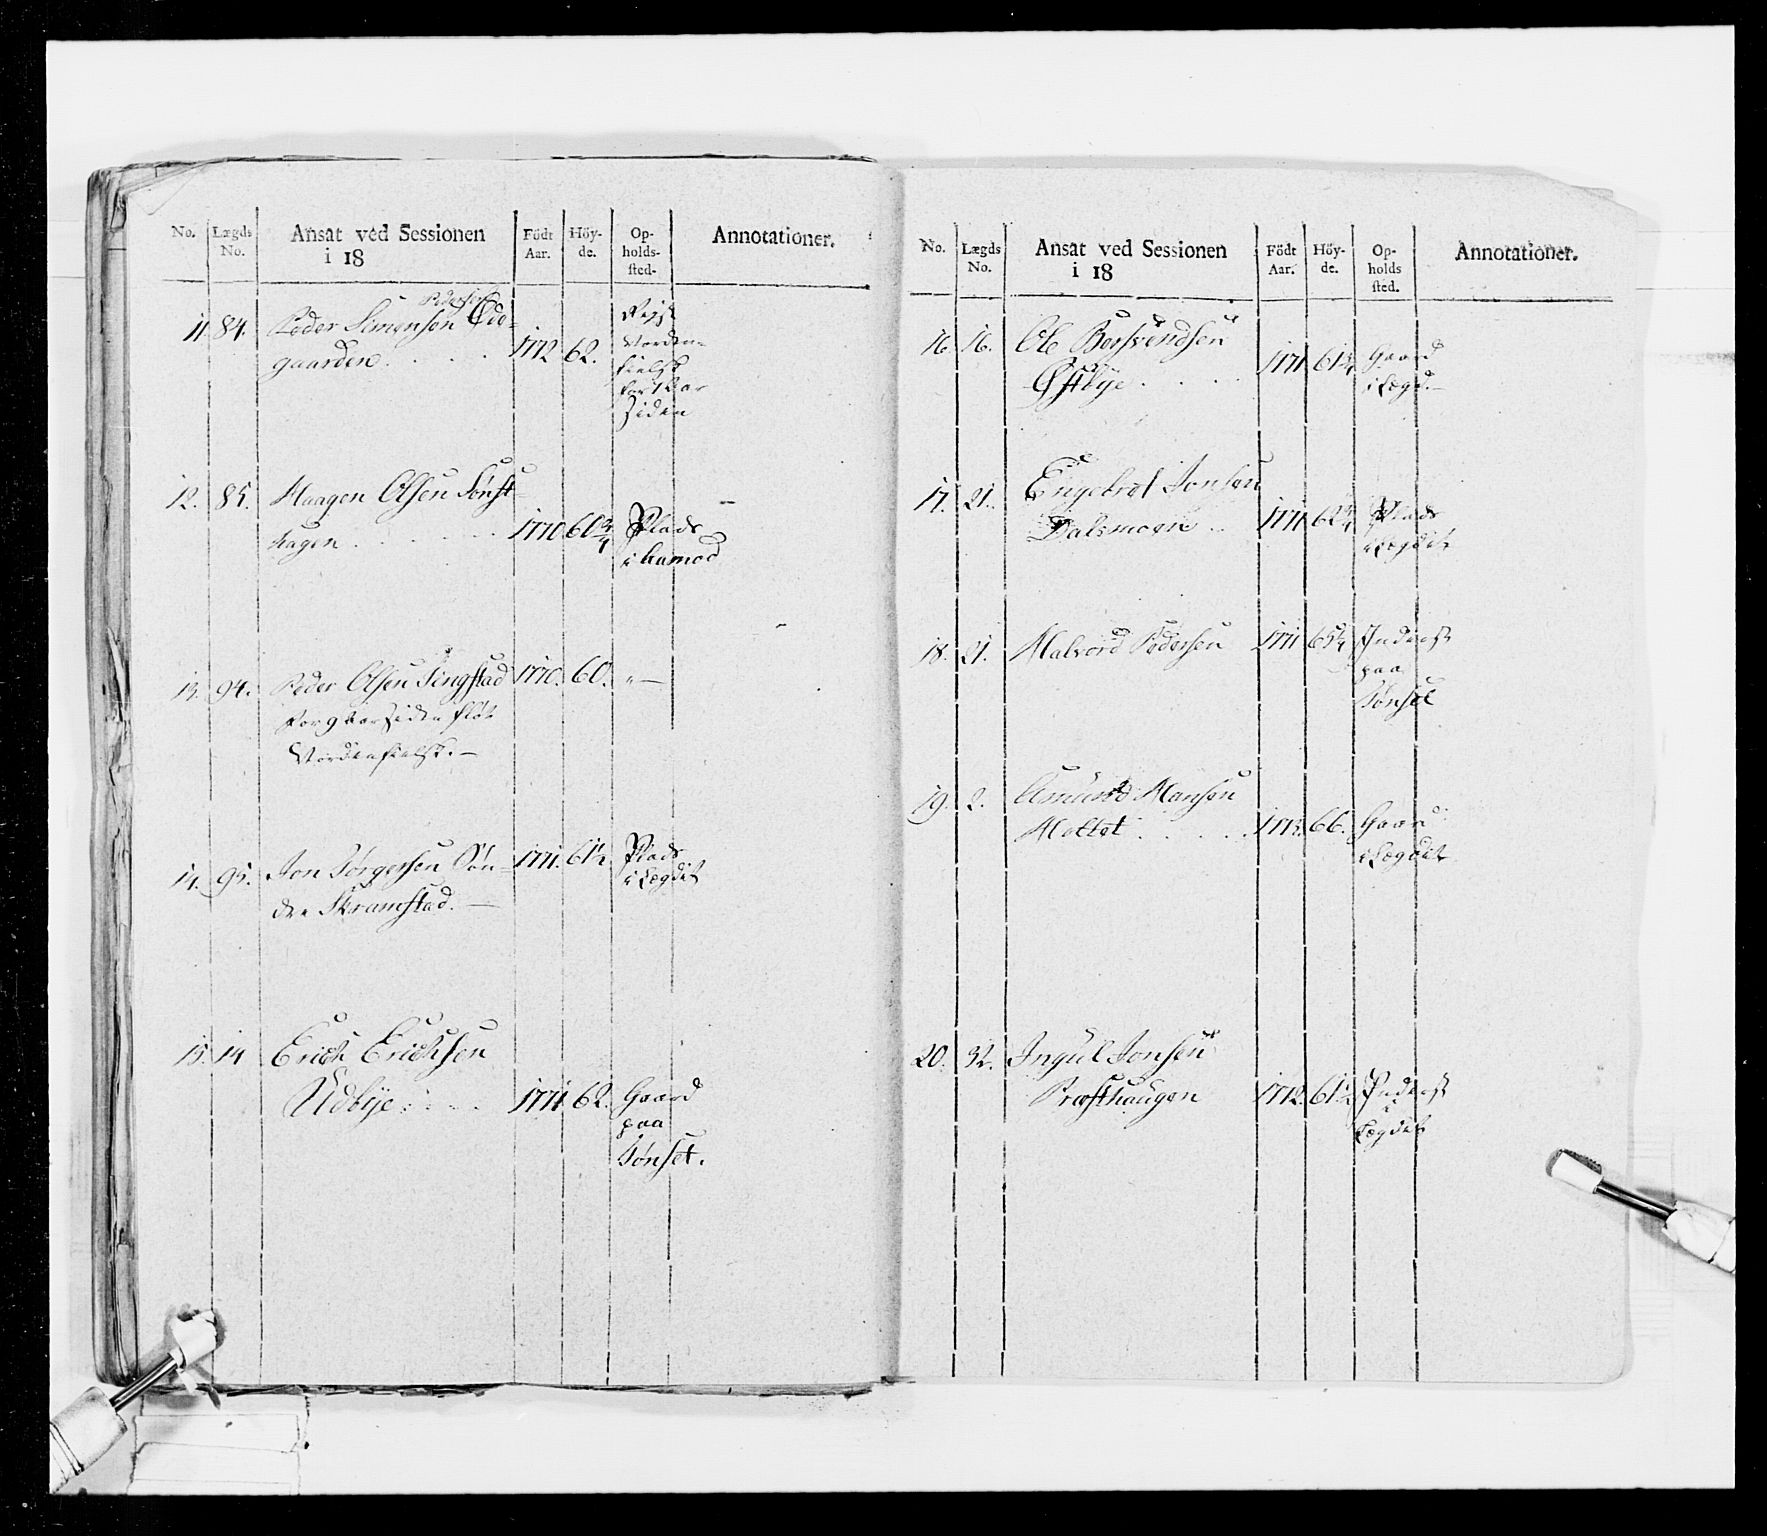 No. Lægds No. Ansat ved Sessionen i 18 Födt Aar. Höy- de. Op- holds- sted. Annotationer.
Pedersen
11. 84. Peder Simensen
gaarden. 1772 62.
Siden
12. 85. Haagen Olsen Sønst-
hagen 1770 60 3/4 Plads
i Aamod
13. 94. Peder Olsen Singstad 1770. 60. "—
Nordenfielsk. —
14. 95. Jon Jørgensen Søn- 1771. 61 1/2. Plads
i Lægdet
dre Skramstad. —
15. 14 Erich Erichsen
Udbye 1771 62. Gaard
paa
Tønset.
No. Lægds No. Ansat ved Sessionen i 18 Födt Aar. Höy- de. Op- holds sted. Annotationer.
16. 16. Ole Bersvendsen
Østbye 1771 61 3/4 Gaard
i Lægd. —
17. 21. Engebret Jonsen
Dalsmoen 1771 62 3/4 Plads
i Lægdet
18. 21. Halvord Pedersen 1771 65 1/4 Inderst
paa
Tønset
19. 2. Amund Hansen
Moltet 1773. 66. Gaard
i Lægdet
20. 32. Ingul Jonsen
Præsthaugen 1772. 61 1/2 Inderst
i
Lægdet